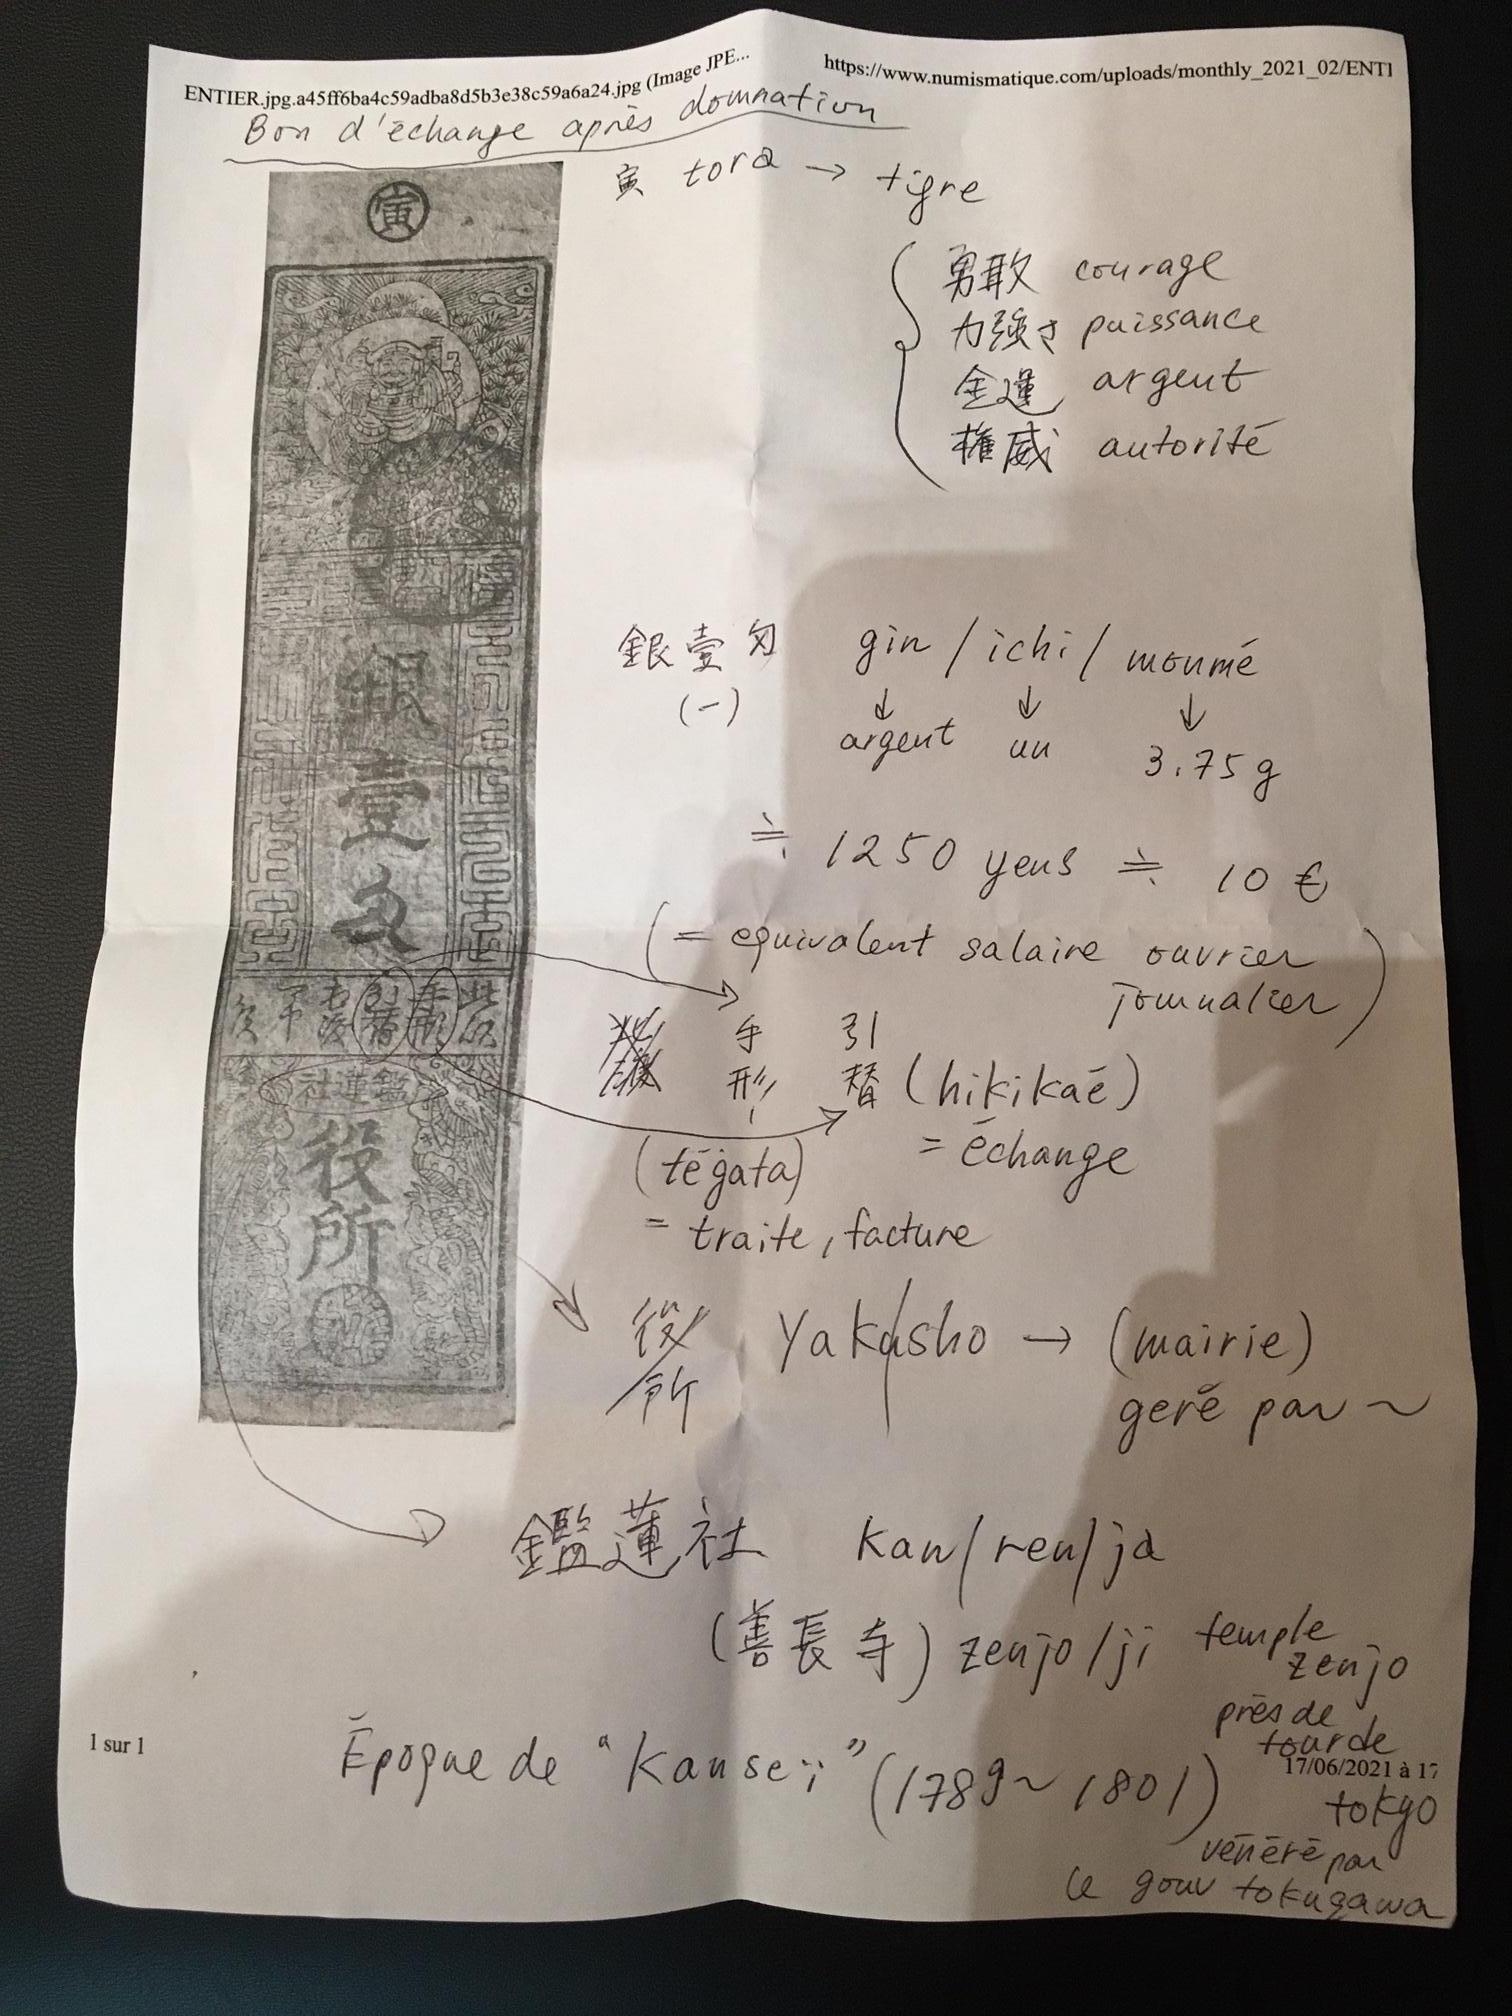 ENTIER.jpg.a45ff6ba4c59adba8d5b3e38c59a6a24.jpg (Image JPE...
https://www.numismatique.com/uploads/monthly_2021_02/ENTI
Bon d'échange après domnation
寅
寅 tora → tigre
勇敢 courage
力強さ puissance
金運 argent
権威 autorité
銀壹匁
銀壹匁 gin / ichi / monmé
(一)
↓ ↓ ↓
argent un 3.75g
≒ 1250 yens ≒ 10 €
(= equivalent salaire ouvrier
journalier)
手形 引替 (hikikaé)
= échange
(tēgata)
= traite, facture
手形
引替
鑑蓮社
役所
役所 Yakusho → (mairie)
geré par ~
鑑蓮社 Kan/ren/ja
(善長寺) zenjo/ji temple
zenjo
près de
tour de
tokyo
vénéré par
le gouv tokugawa
Époque de "Kansei" (1789~1801)
1 sur 1
17/06/2021 à 17